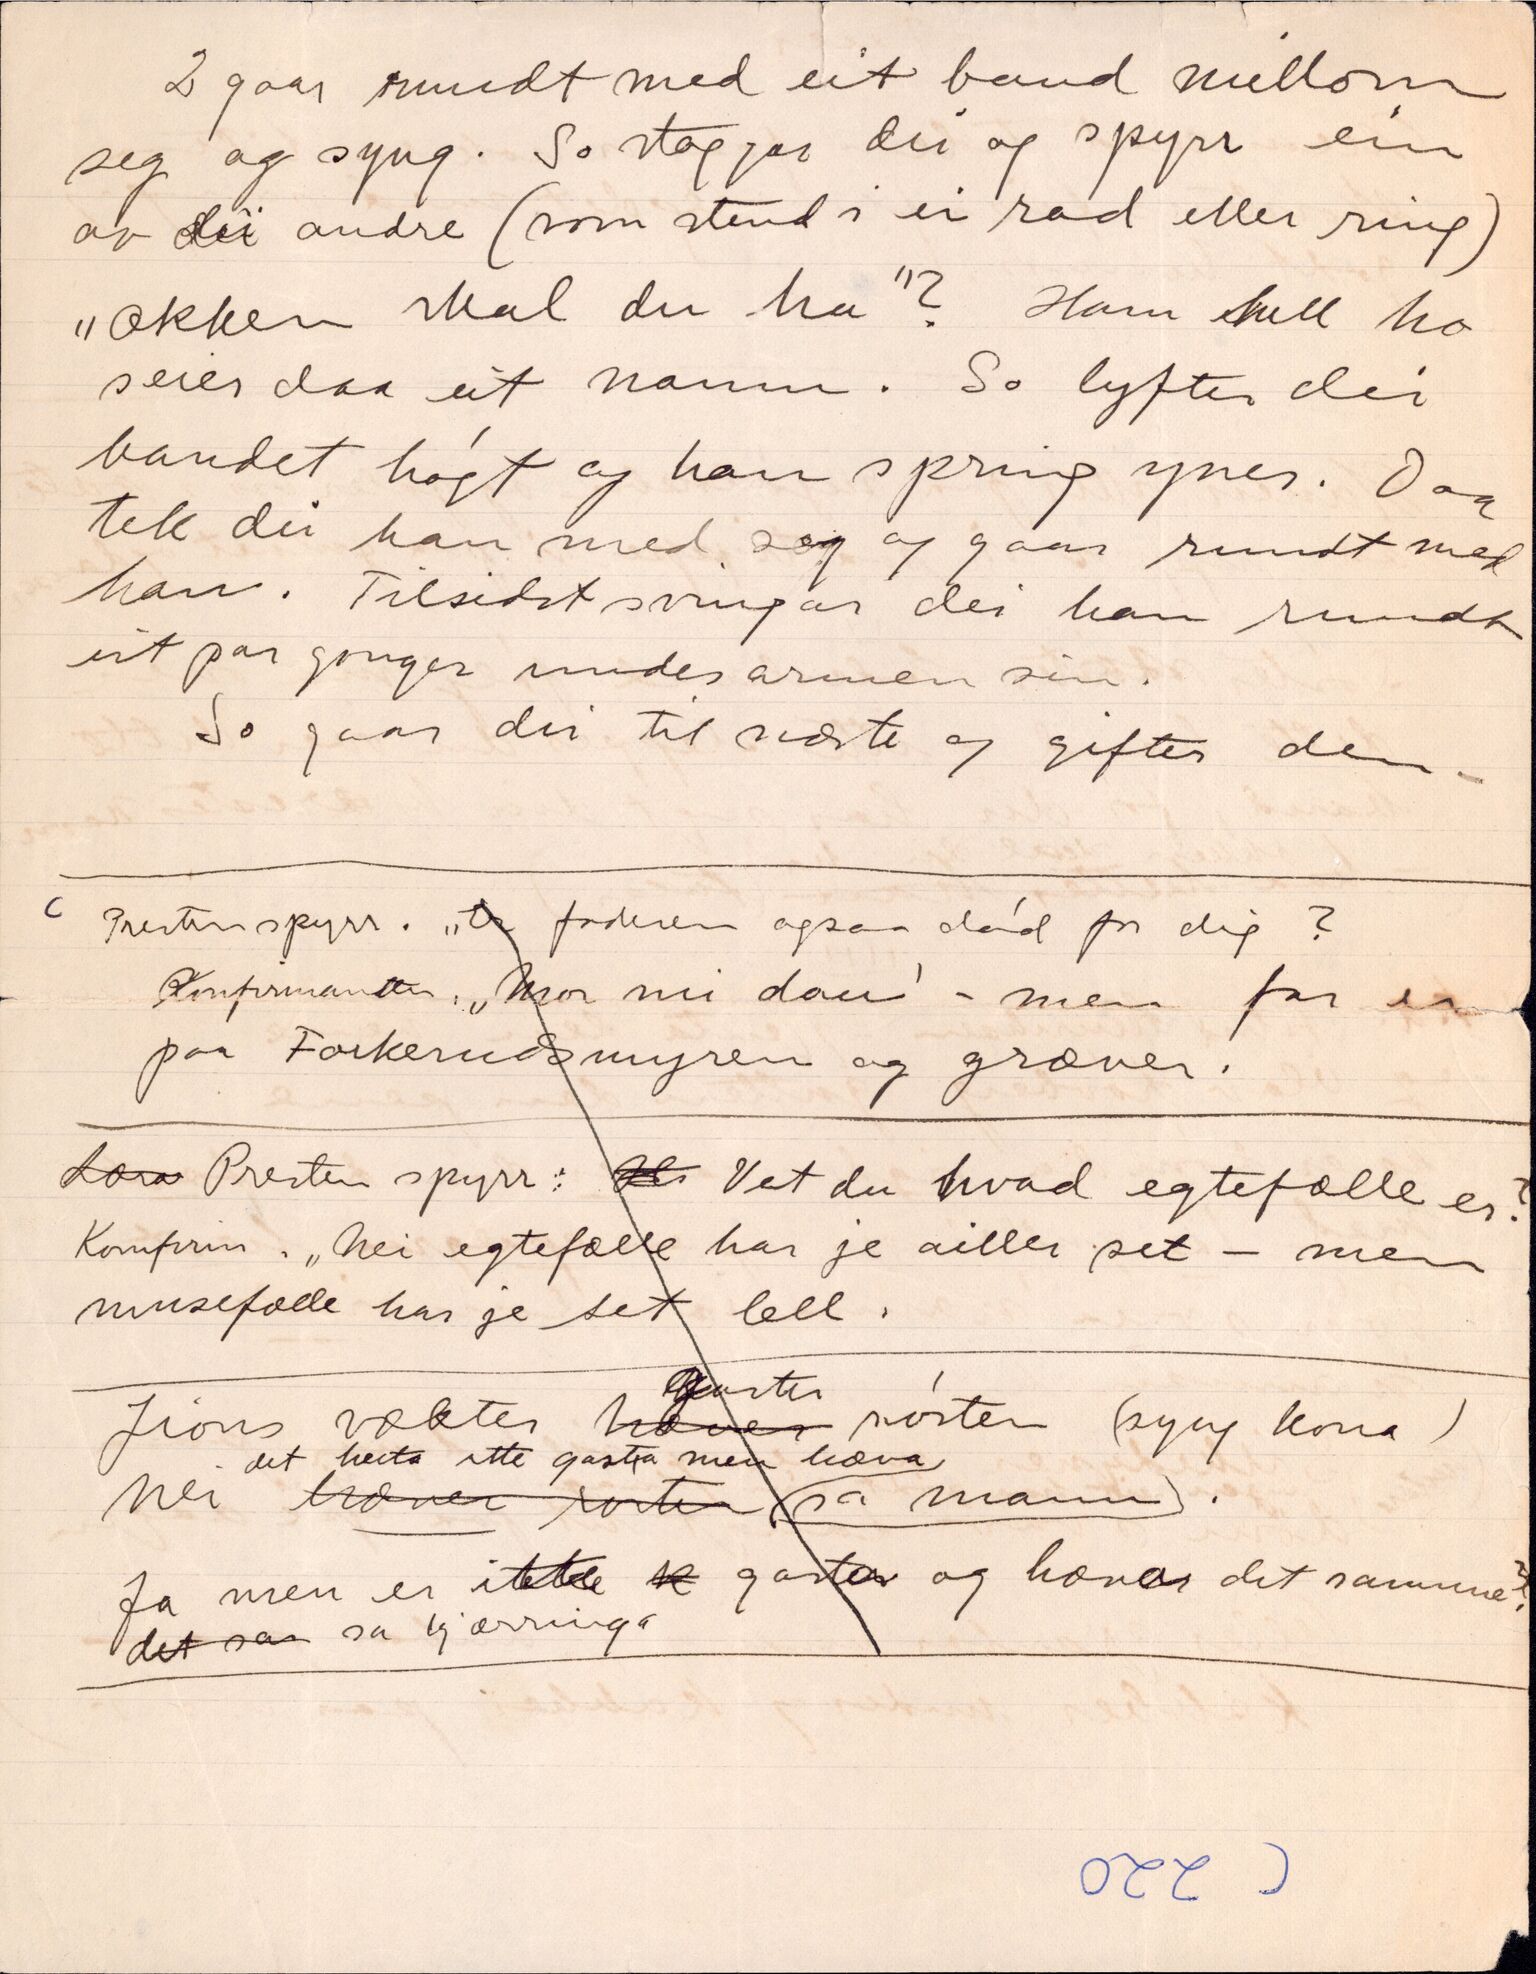 2 gaar rundt med eit band millom
seg og syng. So stoggar dei og spyrr ein
av dei andre (som stend i ei rad eller ring)
„Økken skal du ha"? Ham hell ho
seier daa eit namn. So lyfter dei
bandet høgt og han spring yver. Daa
tek dei han med seg og gaar rundt med
han. Tilsidst svingar dei han rundt
eit par gonger under armen sin.
So gaar dei til næste og gifter den.
C Presten spyrr. „Er faderen ogsaa død for dig?
Konfirmanten. „Mor mi dau' - men far er
paa Forkerudsmyren og græver.
Læra Presten spyrr: Vet du hvad egtefælle er?
Konfirm. „Nei egtefælle har je aller set – men
musefælle har je set lell.
Gaster
Jions vækter hæver røsten (syng kona)
det heita itte gasta men hæva
Nei hæver røsten (sa mann).
Ja men er itte gaster og hæver det samme?
det sa sa kjærringa
C 220